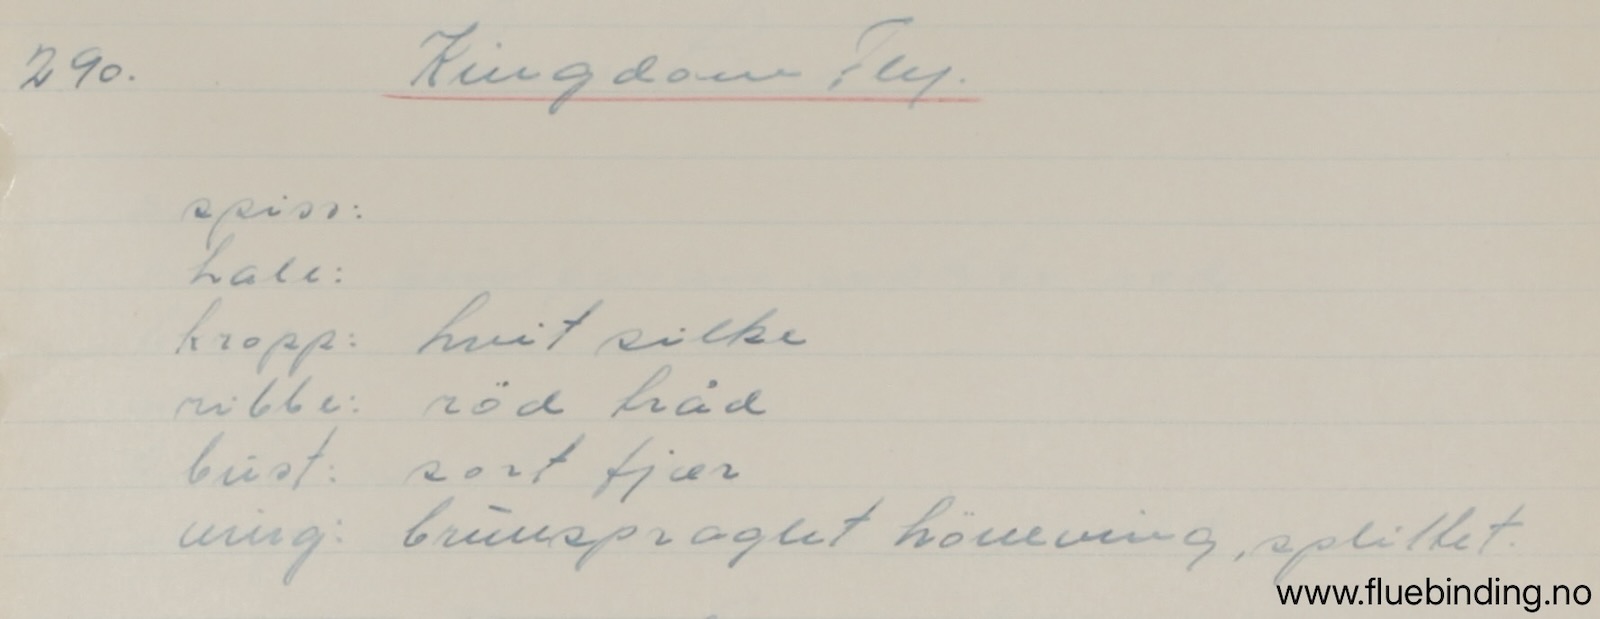 290. Kingdom Fly.
spiss:
hale:
kropp: hvit silke
ribbe: röd tråd
bust: sort fjær
ving: brunspraglet höneving, splittet.
www.fluebinding.no